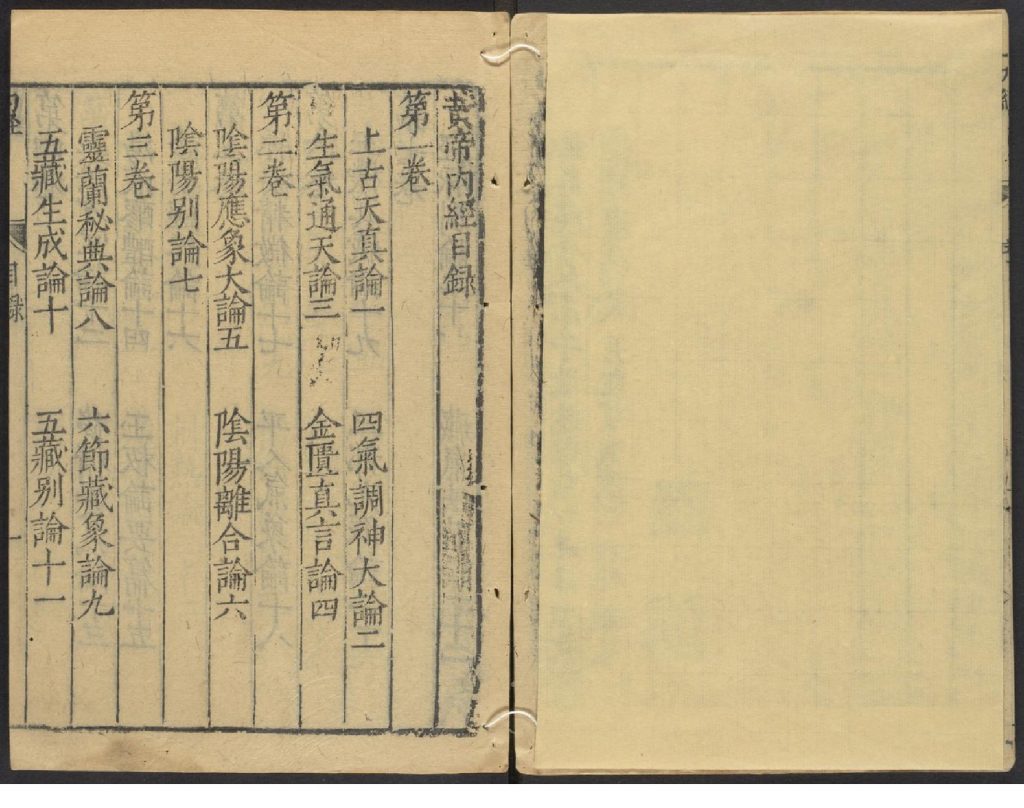 黃帝内經目錄
第一卷
上古天真論一　四氣調神大論二
生氣通天論三　金匱真言論四
第二卷
陰陽應象大論五　陰陽離合論六
陰陽别論七
第三卷
靈蘭秘典論八　六節藏象論九
五藏生成論十　五藏别論十一
目錄
一